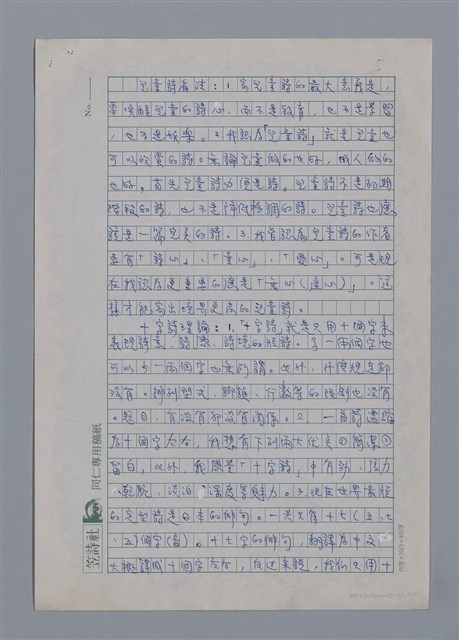 兒童詩看法：1.寫兒童詩的最大意義是，
要喚醒兒童的詩心，而不是教育，也不是學習
，也不是娛樂。2.我認為「兒童詩」就是兒童也
可以欣賞的詩。無論兒童做的也好，成人做的
也好，首先兒童詩必須是詩。兒童詩不是初期
階段的詩，也不是降低格調的詩。兒童詩也應
該是一篇完美的詩。3.我曾認為兒童詩的作者
要有「詩心」、「童心」、「愛心」。可是現
在我認為更重要的應是「無心（虛心）」。這
樣才能寫出境界更高的兒童詩。
十字詩理論：1.「十字詩」就是只用十個字來
表現詩意、詩感、詩境的短詩。多一兩個字也
可以，少一兩個字也無所謂。此外，什麼規定都
沒有。排列型式、腳韻、行數等的限制也沒有
。題目，有沒有都沒有關係。2.一首詩濃縮
為十個字左右，我想有下列兩大優點①簡潔②
留白，此外，我感覺「十字詩」中有
、淡泊
3.現在世界最短
的定型詩是日本的俳句。一共只有十七（五、七
、五）個字（音）。十七字的俳句，翻譯為中文，
大概譯成十個字左右，反過來說，我們只用十
No.
笠詩社
同仁專用稿紙